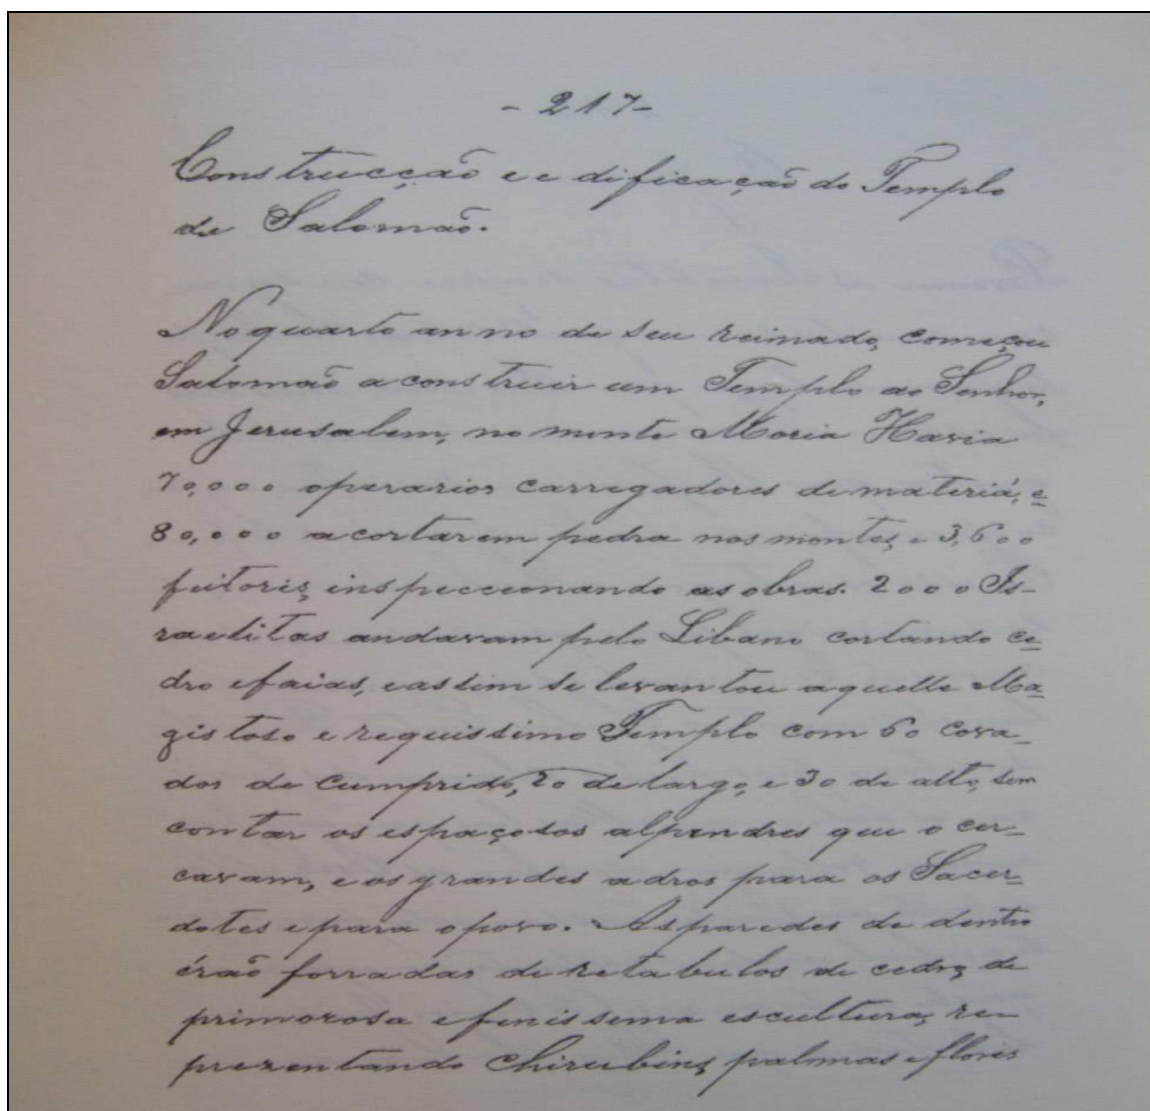 - 217-
Construcção e edificação do Templo
de Salomão.
No quarto anno de seu reinado, começou
Salomão a construir um Templo ao Senhor,
em Jerusalem, no monte Moria Havia
70,000 operarios carregadores de materiá, e
80,000 a cortarem pedra nos montes, e 3,600
feitores, inspeccionando as obras. 2000 Is-
raelitas andavam pelo Libano cortando ce-
dro e faias, e assim se levantou aquelle Ma-
gistoso e requissimo Templo com 60 cova-
dos de cumprido, 20 de largo, e 30 de alto, sem
contar os espaçosos alpendres que o cer-
cavam, e os grandes adros para os Sacer-
dotes e para o povo. As paredes de dentro
érão forradas de retabulos de cedro, de
primorosa e finissema escultura, re-
prezentando Chirubins, palmas e flores